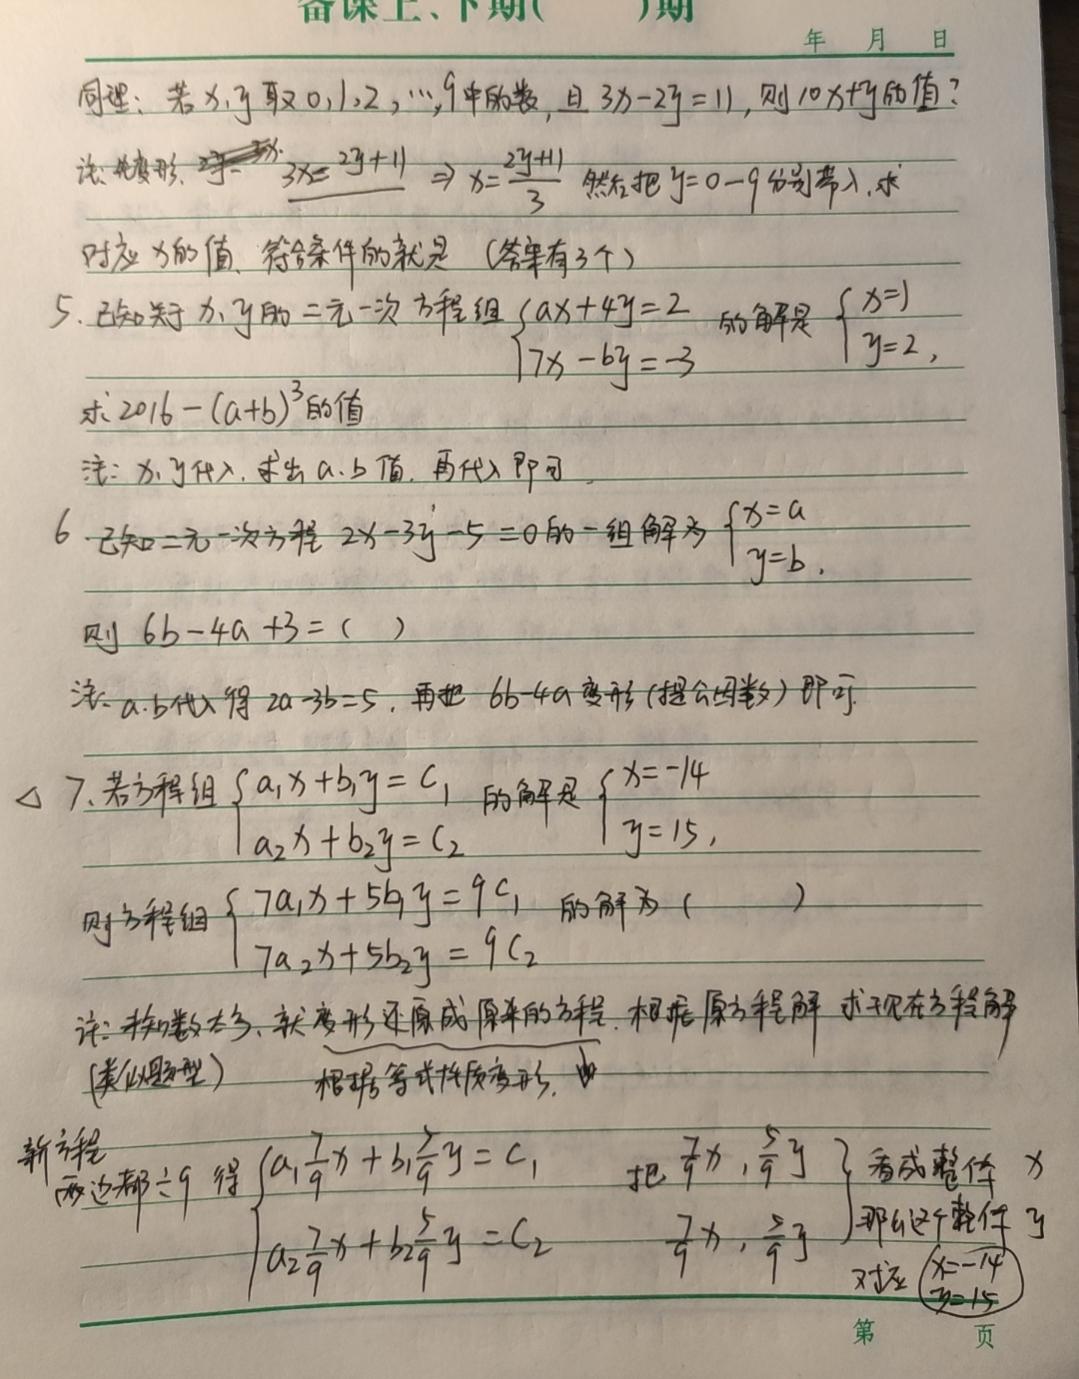 备课上、下期( )期
年 月 日
同理：若x,y取0,1,2,…,9中的数,且3x-2y=11,则10x+y的值?
注:先变形, 3x=2y+11 ⇒ x=(2y+11)/3 然后把y=0-9分别带入,求
对应x的值、符合条件的就是（答案有3个）
5、已知关于x、y的二元一次方程组{ax+4y=2 的解是{x=1
7x-by=-3 y=2,
求2016-(a+b)³的值
注：x、y代入,求出a.b值,再代入即可.
6 已知二元一次方程2x-3y-5=0的一组解为{x=a
y=b.
则 6b-4a+3=( )
注:a.b代入得2a-3b=5,再把6b-4a变形(提公因数)即可.
△7、若方程组{a₁x+b₁y=c₁ 的解是{x=-14
a₂x+b₂y=c₂ y=15,
则方程组{7a₁x+5b₁y=9c₁ 的解为( )
7a₂x+5b₂y=9c₂
注:未知数太多、就变形还原成原来的方程.根据原方程解求现在方程解
(类似题型) 根据等式性质变形.
新方程
两边都÷9 得{a₁7/9x+b₁5/9y=c₁ 把7/9x,5/9y}看成整体 x
a₂7/9x+b₂5/9y=c₂ 7/9x,5/9y 那么这个整体 y
对应 x=-14
y=15
第 页